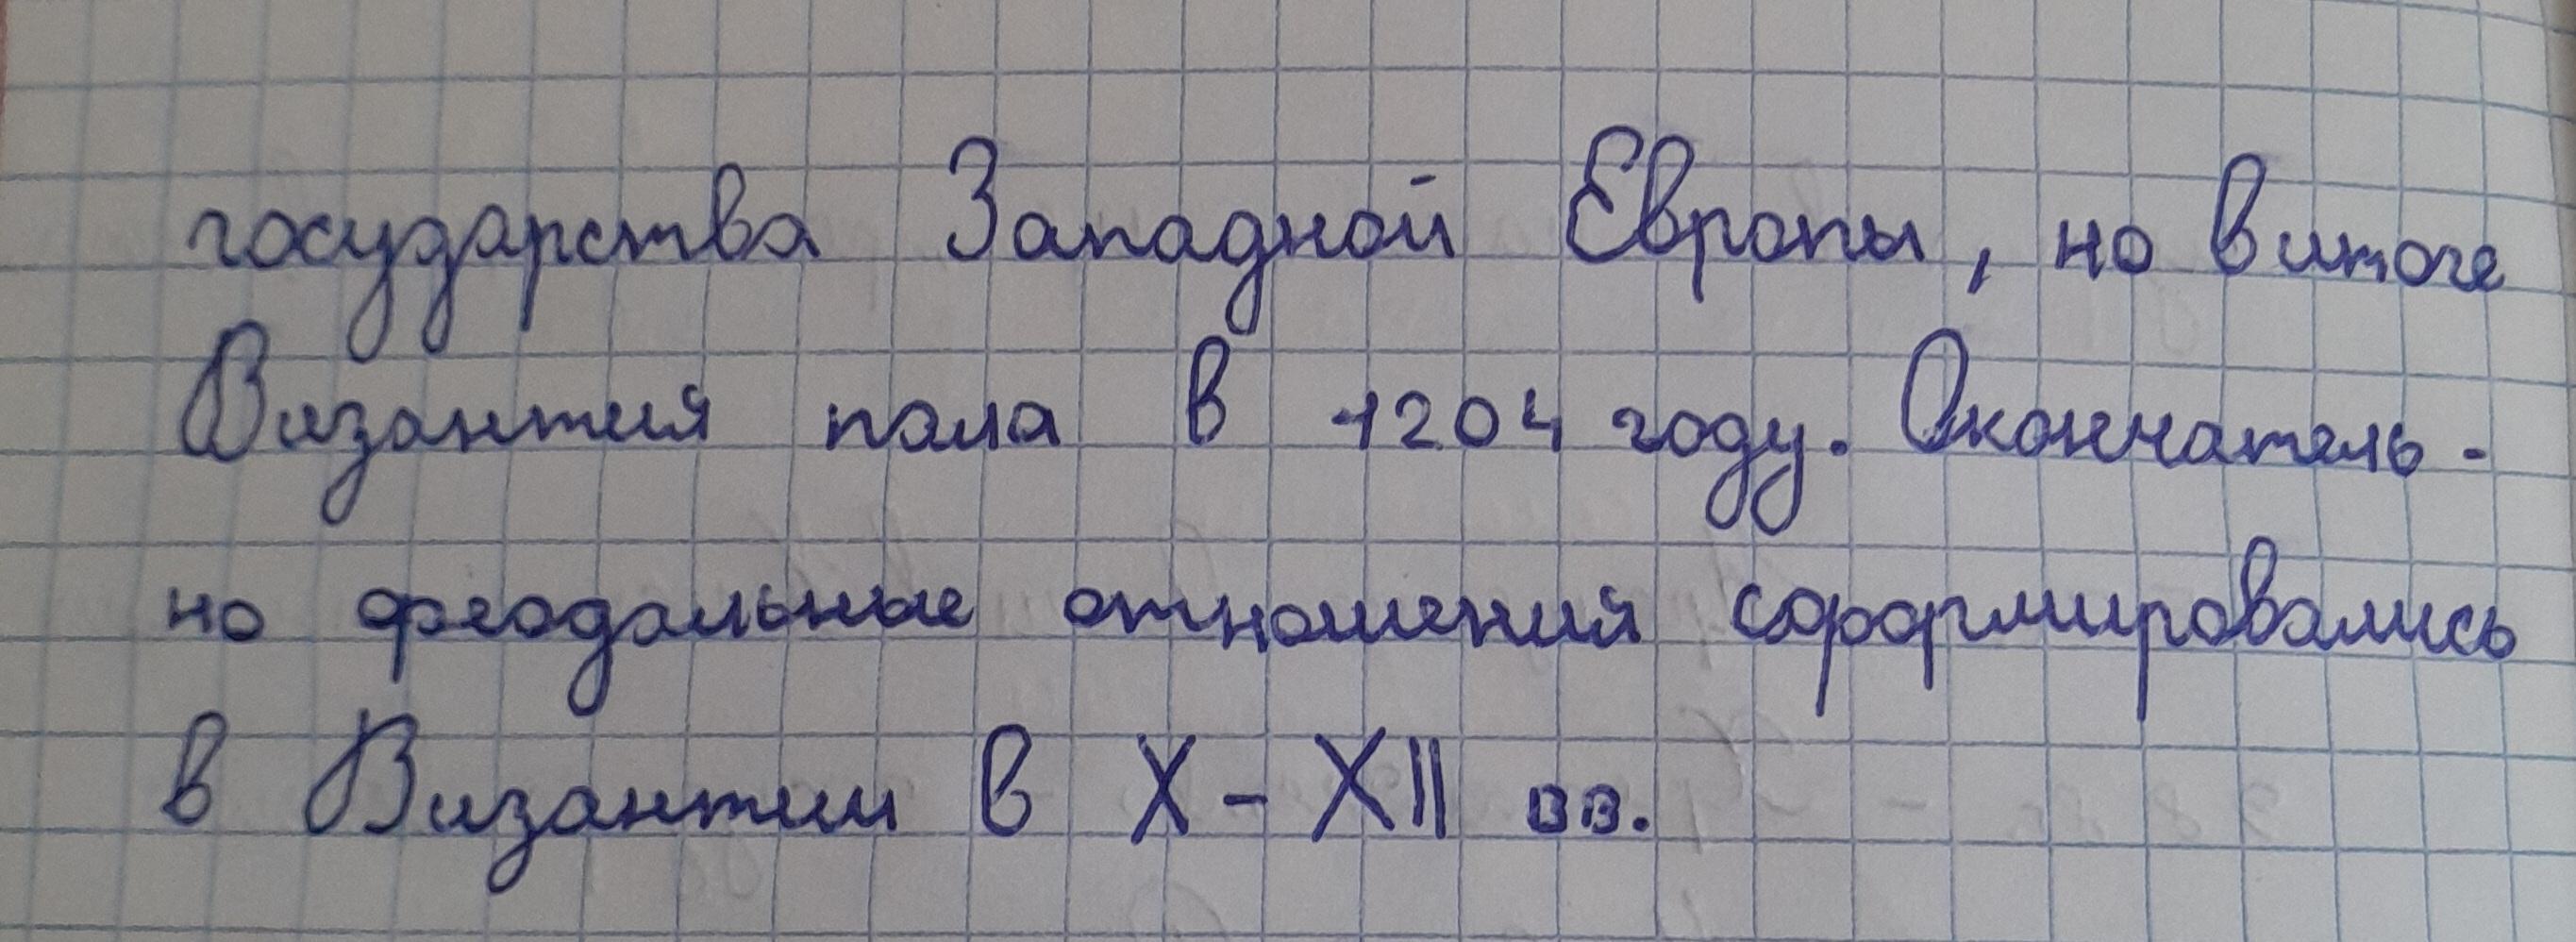 государства Западной Европы, но в итоге
Византия пала в 1204 году. Окончатель-
но феодальные отношения сформировались
в Византии в X - XII вв.